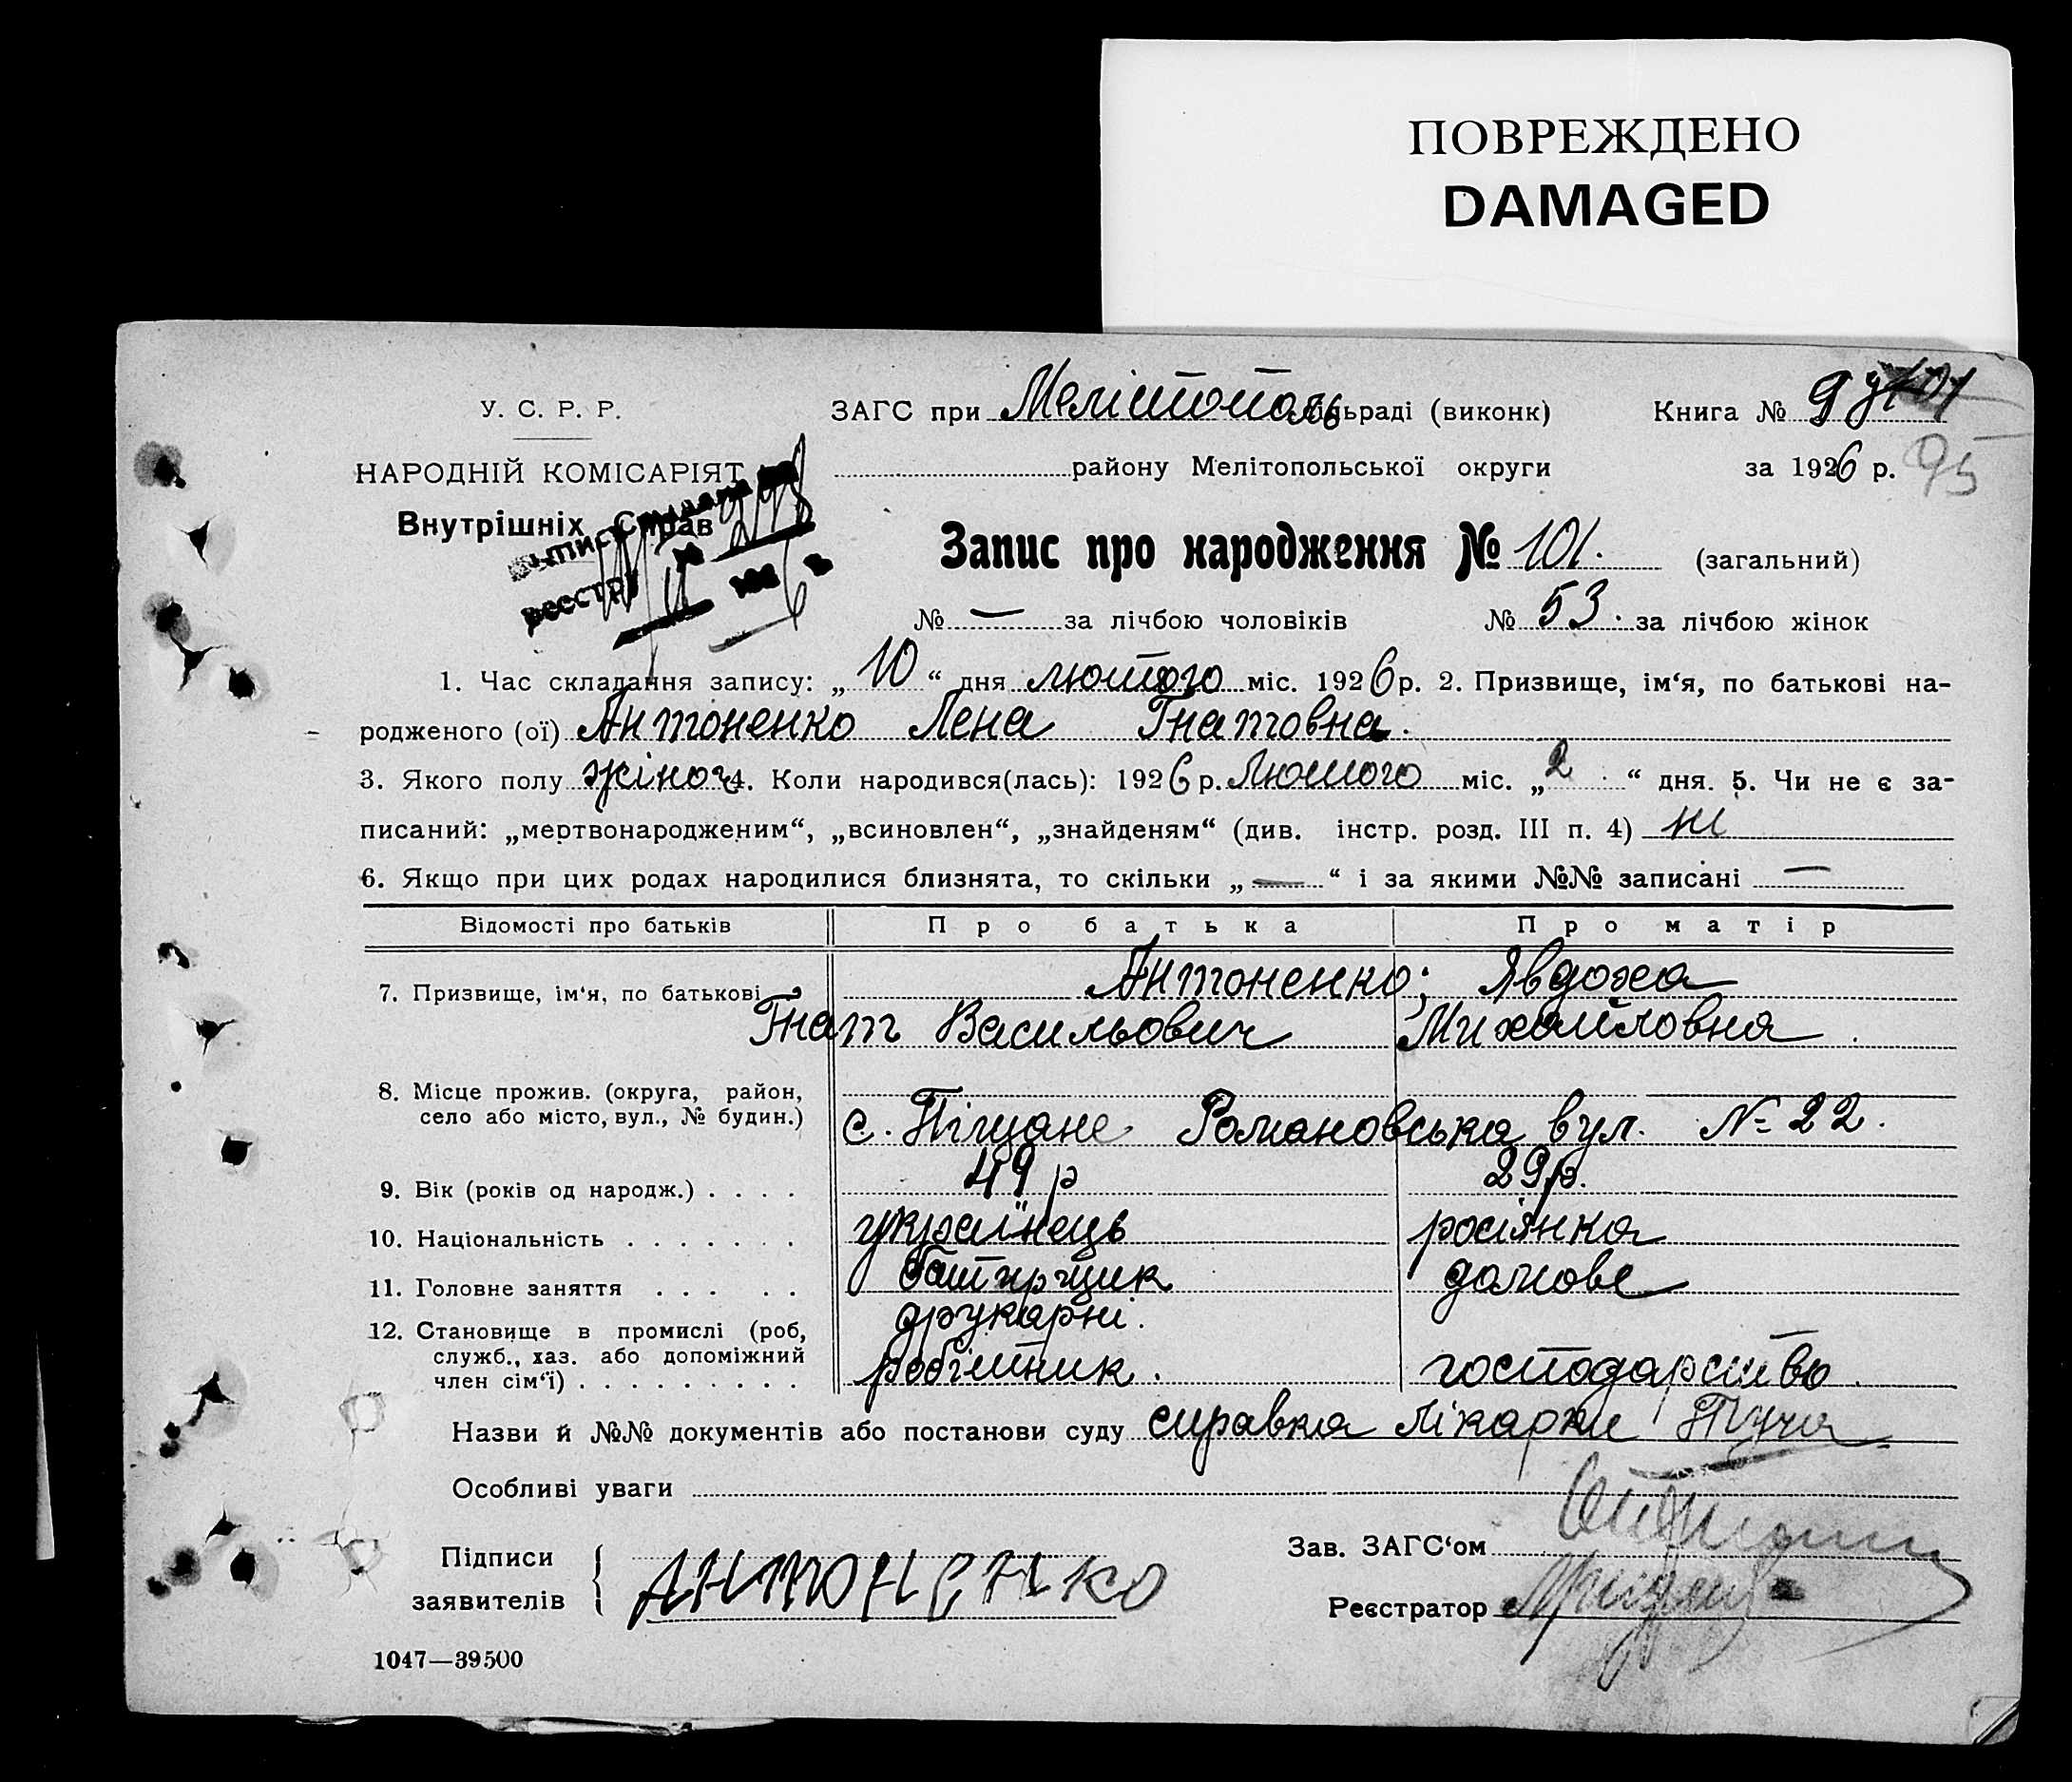 ПОВРЕЖДЕНО
DAMAGED
У. С. Р. Р.
ЗАГС при Мелітополь міськраді (виконк) Книга № 9
НАРОДНІЙ КОМІСАРІЯТ
району Мелітопольської округи за 1926 р. 95
Внутрішніх Справ
реєстру
Запис про народження № 101. (загальний)
№ — за лічбою чоловіків № 53. за лічбою жінок
1. Час складання запису: „ 10 “ дня лютого міс. 1926 р. 2. Призвище, ім‘я, по батькові на-
родженого (ої) Антоненко Лена Гнатовна.
3. Якого полу жіноч 4. Коли народився(лась): 1926 р. Лютого міс. „ 2 “ дня. 5. Чи не є за-
писаний: „мертвонародженим“, „всиновлен“, „знайденям“ (див. інстр. розд. III п. 4) ні
6. Якщо при цих родах народилися близнята, то скільки „ — “ і за якими №№ записані —
Відомості про батьків Про батька Про матір
7. Призвище, ім‘я, по батькові Антоненко; Явдоха
Гнат Васильович Михайловна.
8. Місце прожив. (округа, район,
село або місто, вул., № будин.) с. Піщане Романовська вул. № 22.
9. Вік (років од народж.) . . . . 49 р 29 р.
10. Національність . . . . . . . українець росіянка
11. Головне заняття . . . . . домове
друкарні.
12. Становище в промислі (роб,
служб., хаз. або допоміжний
член сім‘ї) . . . . . . . . . робітник. господарство.
Назви й №№ документів або постанови суду справка лікарки
Особливі уваги
Зав. ЗАГС‘ом
Підписи
заявителів Антоненко
Реєстратор
1047—39500